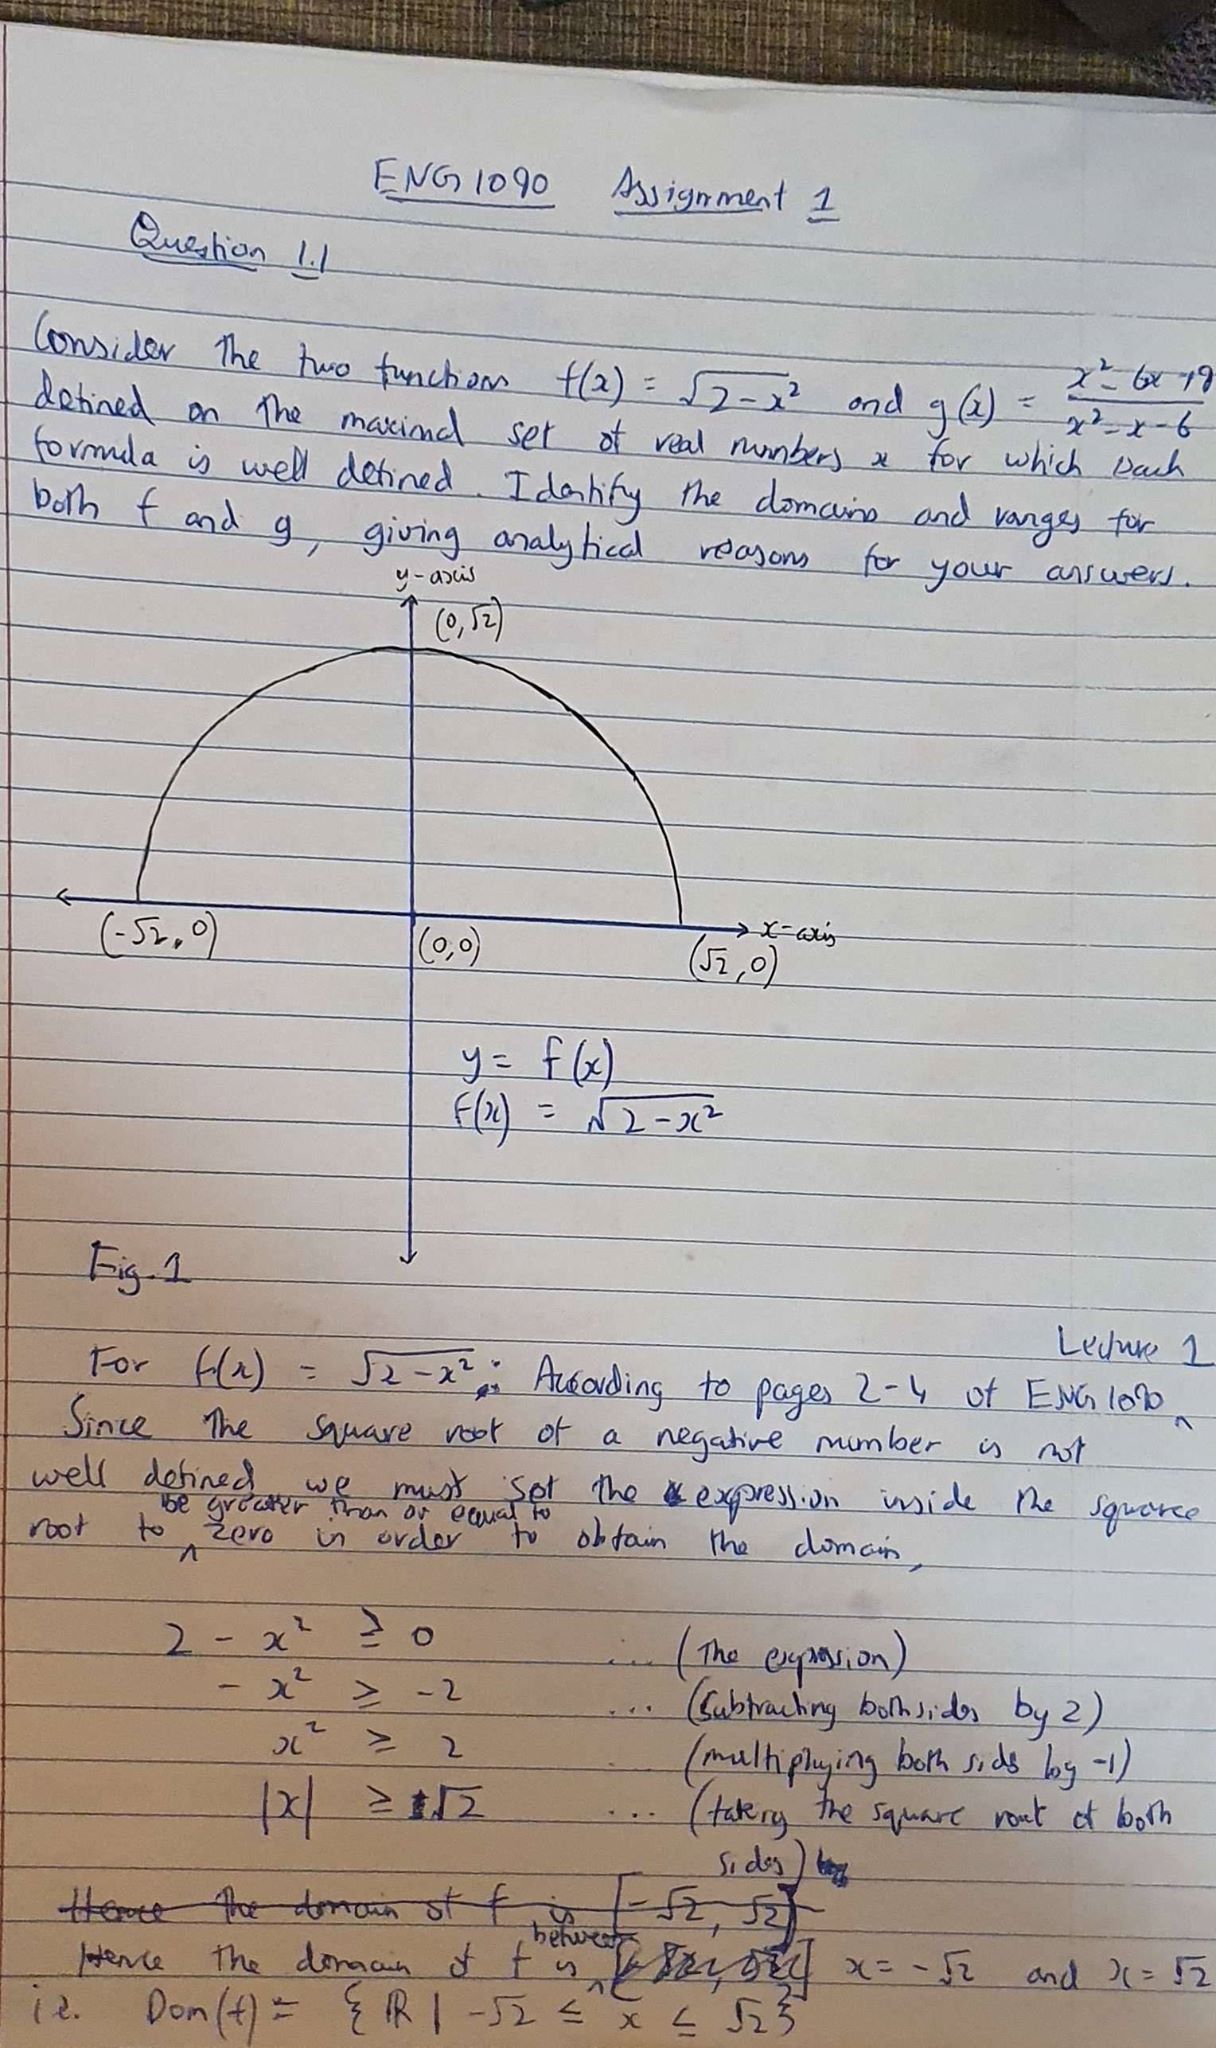 ENG1090 Assignment 1
Question 1.1
Consider the two functions f(x) = √2-x² and g(x) = x²-6x+9 / x²-x-6
defined on the maximal set of real numbers x for which each
formula is well defined. Identify the domains and ranges for
both f and g, giving analytical reasons for your answers.
y-axis
(0,√2)
(-√2,0)
(0,0)
(√2,0)
x-axis
y = f(x)
f(x) = √2-x²
Fig.1
Lecture 1
For f(x) = √2-x²: According to pages 2-4 of ENG1090 ^
Since the square root of a negative number is not
well defined we must set the expression inside the square
be greater than or equal to
root to ^ zero in order to obtain the domain,
2 - x² ≥ 0 ... (The expression)
- x² ≥ -2 ... (Subtracting both sides by 2)
x² ≥ 2 (multiplying both sides by -1)
|x| ≥ √2 ... (taking the square root of both
sides)
Hence the domain of f is [-√2, √2]
between
Hence the domain of f is ^ x = -√2 and x = √2
i.e. Dom(f) = {ℝ | -√2 ≤ x ≤ √2}